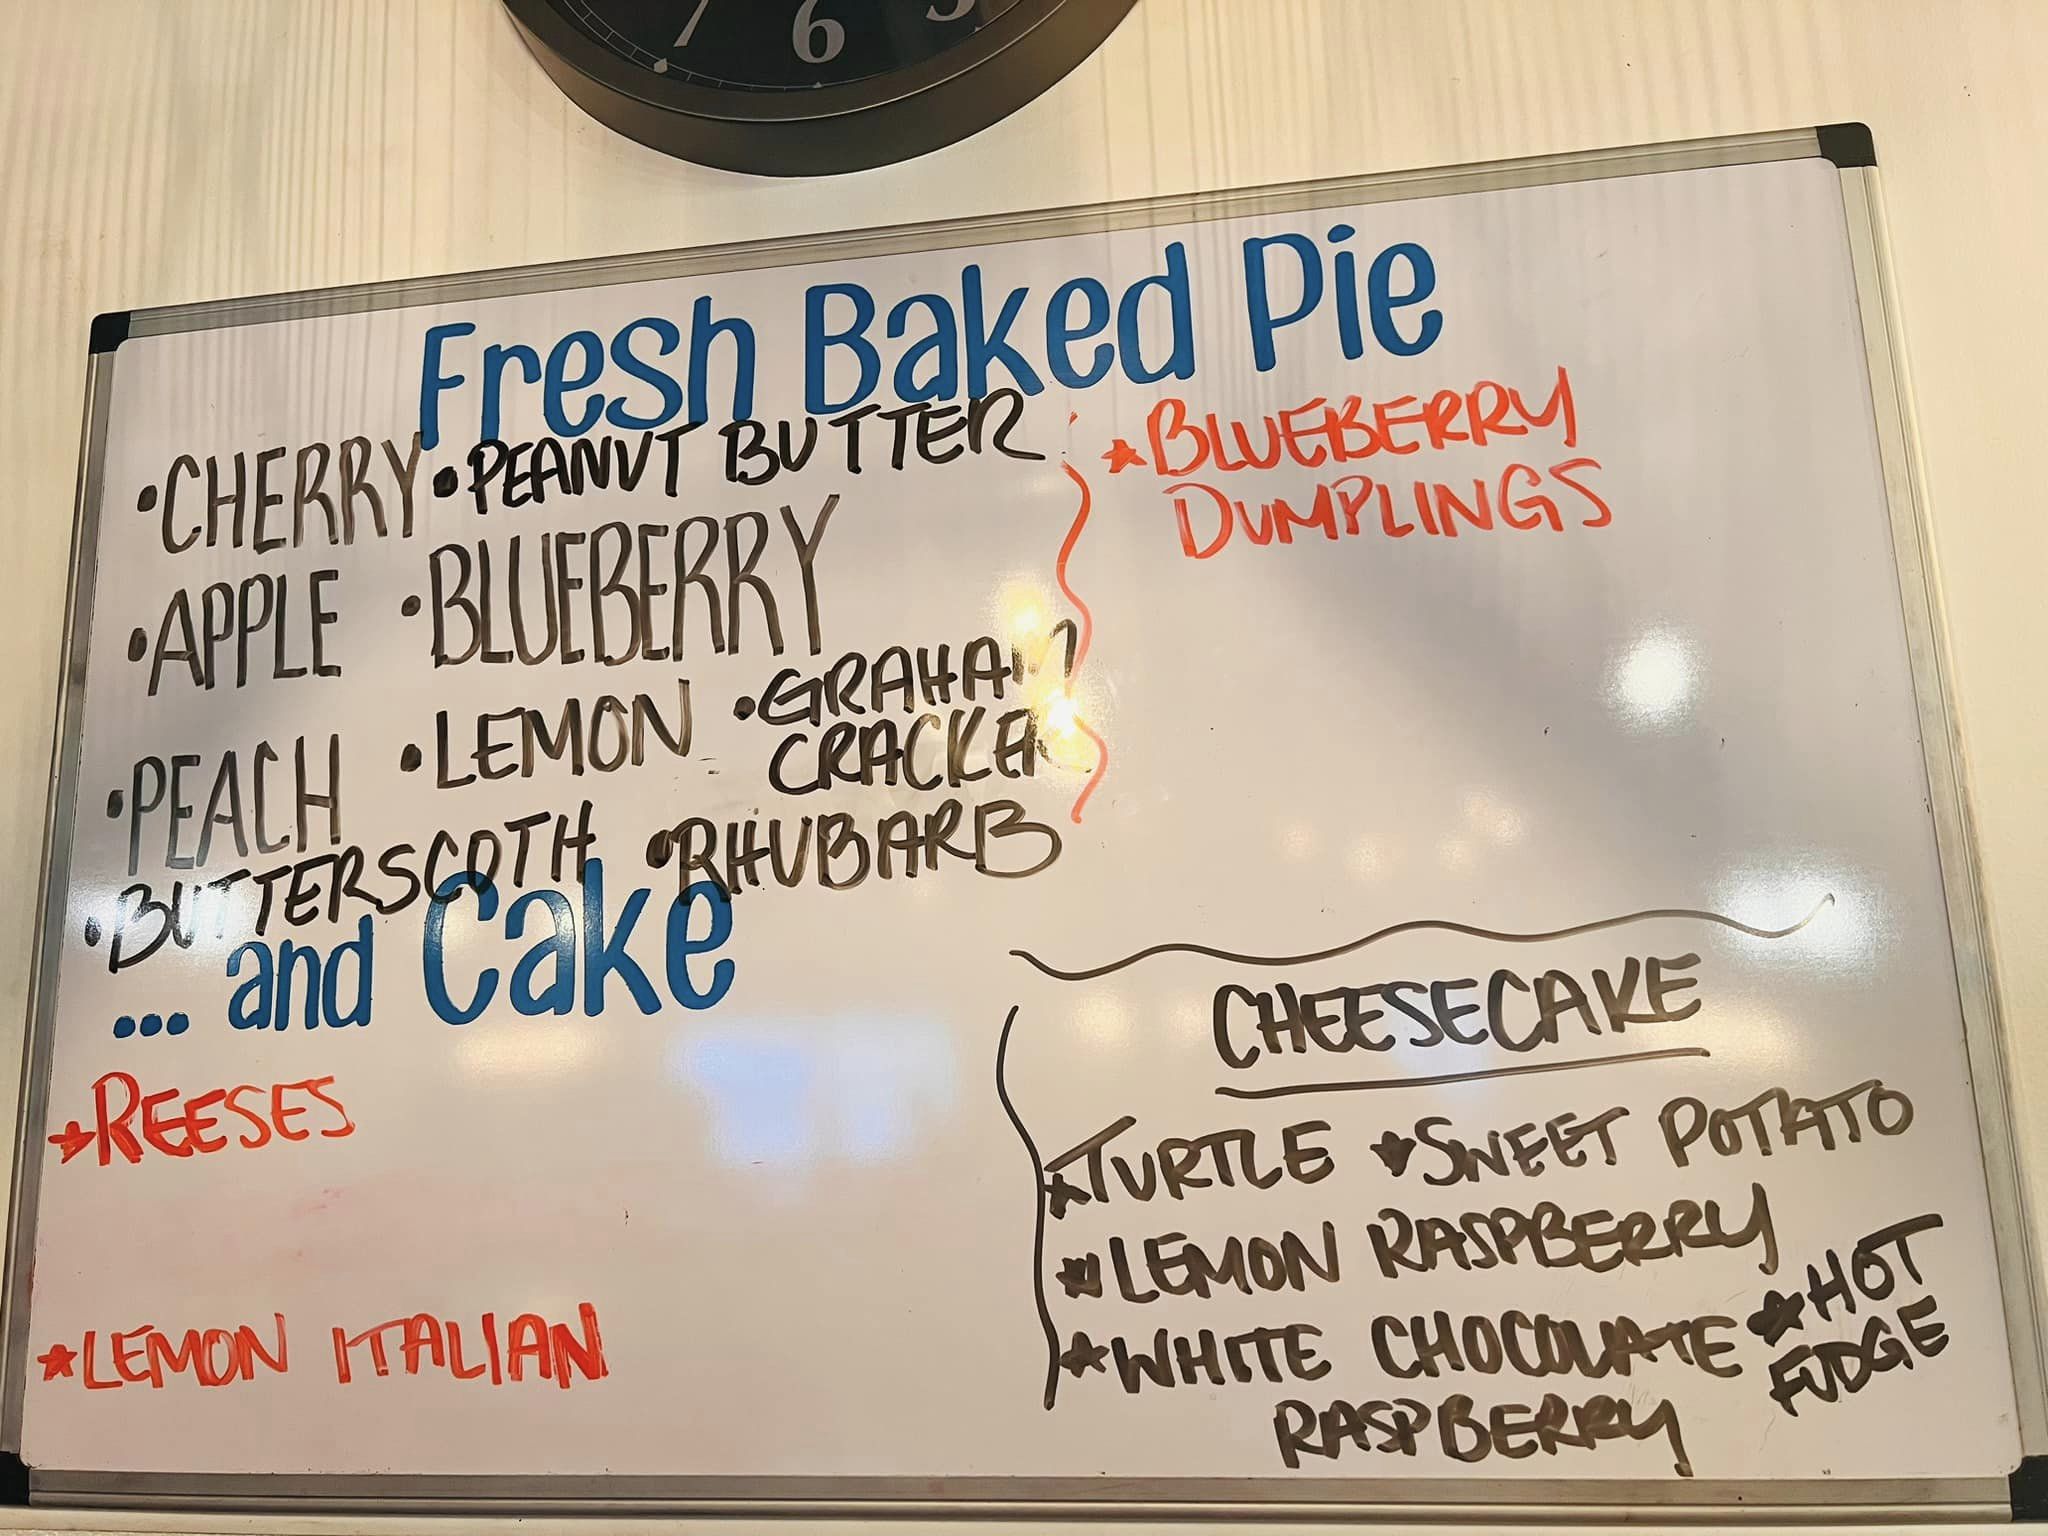 7 6 5
Fresh Baked Pie
•CHERRY •PEANUT BUTTER
•APPLE •BLUEBERRY
•PEACH •LEMON •GRAHAM
CRACKER
•BUTTERSCOTH •RHUBARB
★BLUEBERRY
DUMPLINGS
... and Cake
★REESES
★LEMON ITALIAN
CHEESECAKE
★TURTLE ★SWEET POTATO
★LEMON RASPBERRY
★WHITE CHOCOLATE
RASPBERRY
★HOT
FUDGE